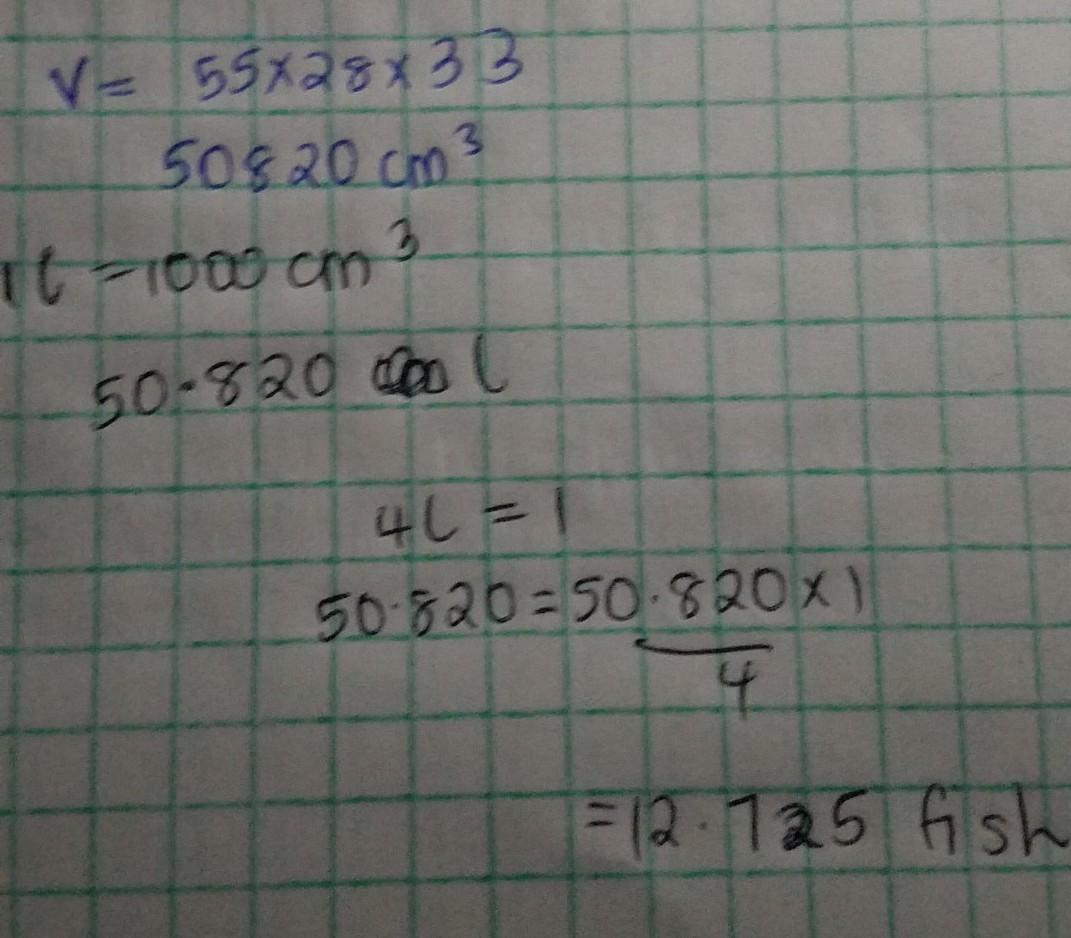 V= 55×28×33
50820 cm³
1l =1000 cm³
50.820 l
4l = 1
50.820 = 50.820 × 1
4
=12.725 fish